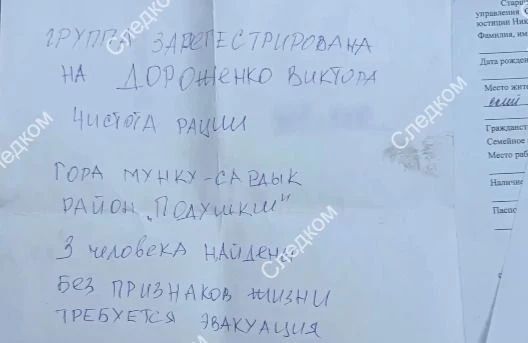 ГРУППА ЗАРЕГЕСТРИРОВАНА
НА ДОРОЖЕНКО ВИКТОРА
ЧИСТОТА РАЦИИ
ГОРА МУНКУ-САРДЫК
РАЙОН "ПОДУШКИ"
3 человека НАЙДЕНЫ
БЕЗ ПРИЗНАКОВ ЖИЗНИ
ТРЕБУЕТСЯ ЭВАКУАЦИЯ
Следком
Следком
Следком
Следком
Следком
Следком
управления
юстиции Ник
Фамилия, им
Дата рожден
Место жит
Гражданст
Семейное
Место раб
Наличие
Паспо